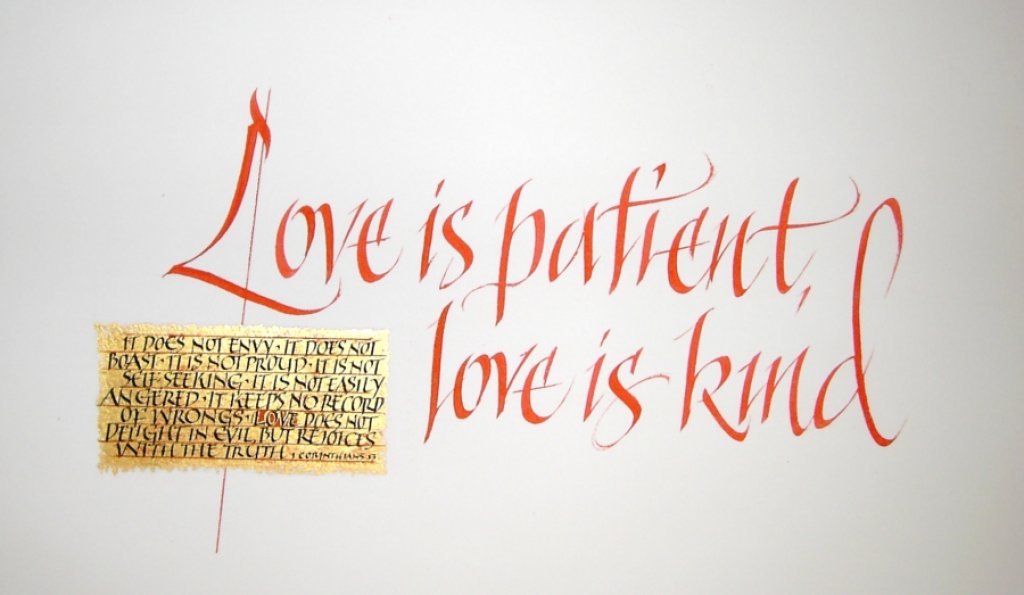 Love is patient,
love is kind
IT DOES NOT ENVY · IT DOES NOT
BOAST · IT IS NOT PROUD · IT IS NOT
SELF SEEKING · IT IS NOT EASILY
ANGERED · IT KEEPS NO RECORD
OF WRONGS · LOVE DOES NOT
DELIGHT IN EVIL BUT REJOICES
WITH THE TRUTH 1 CORINTHIANS 13